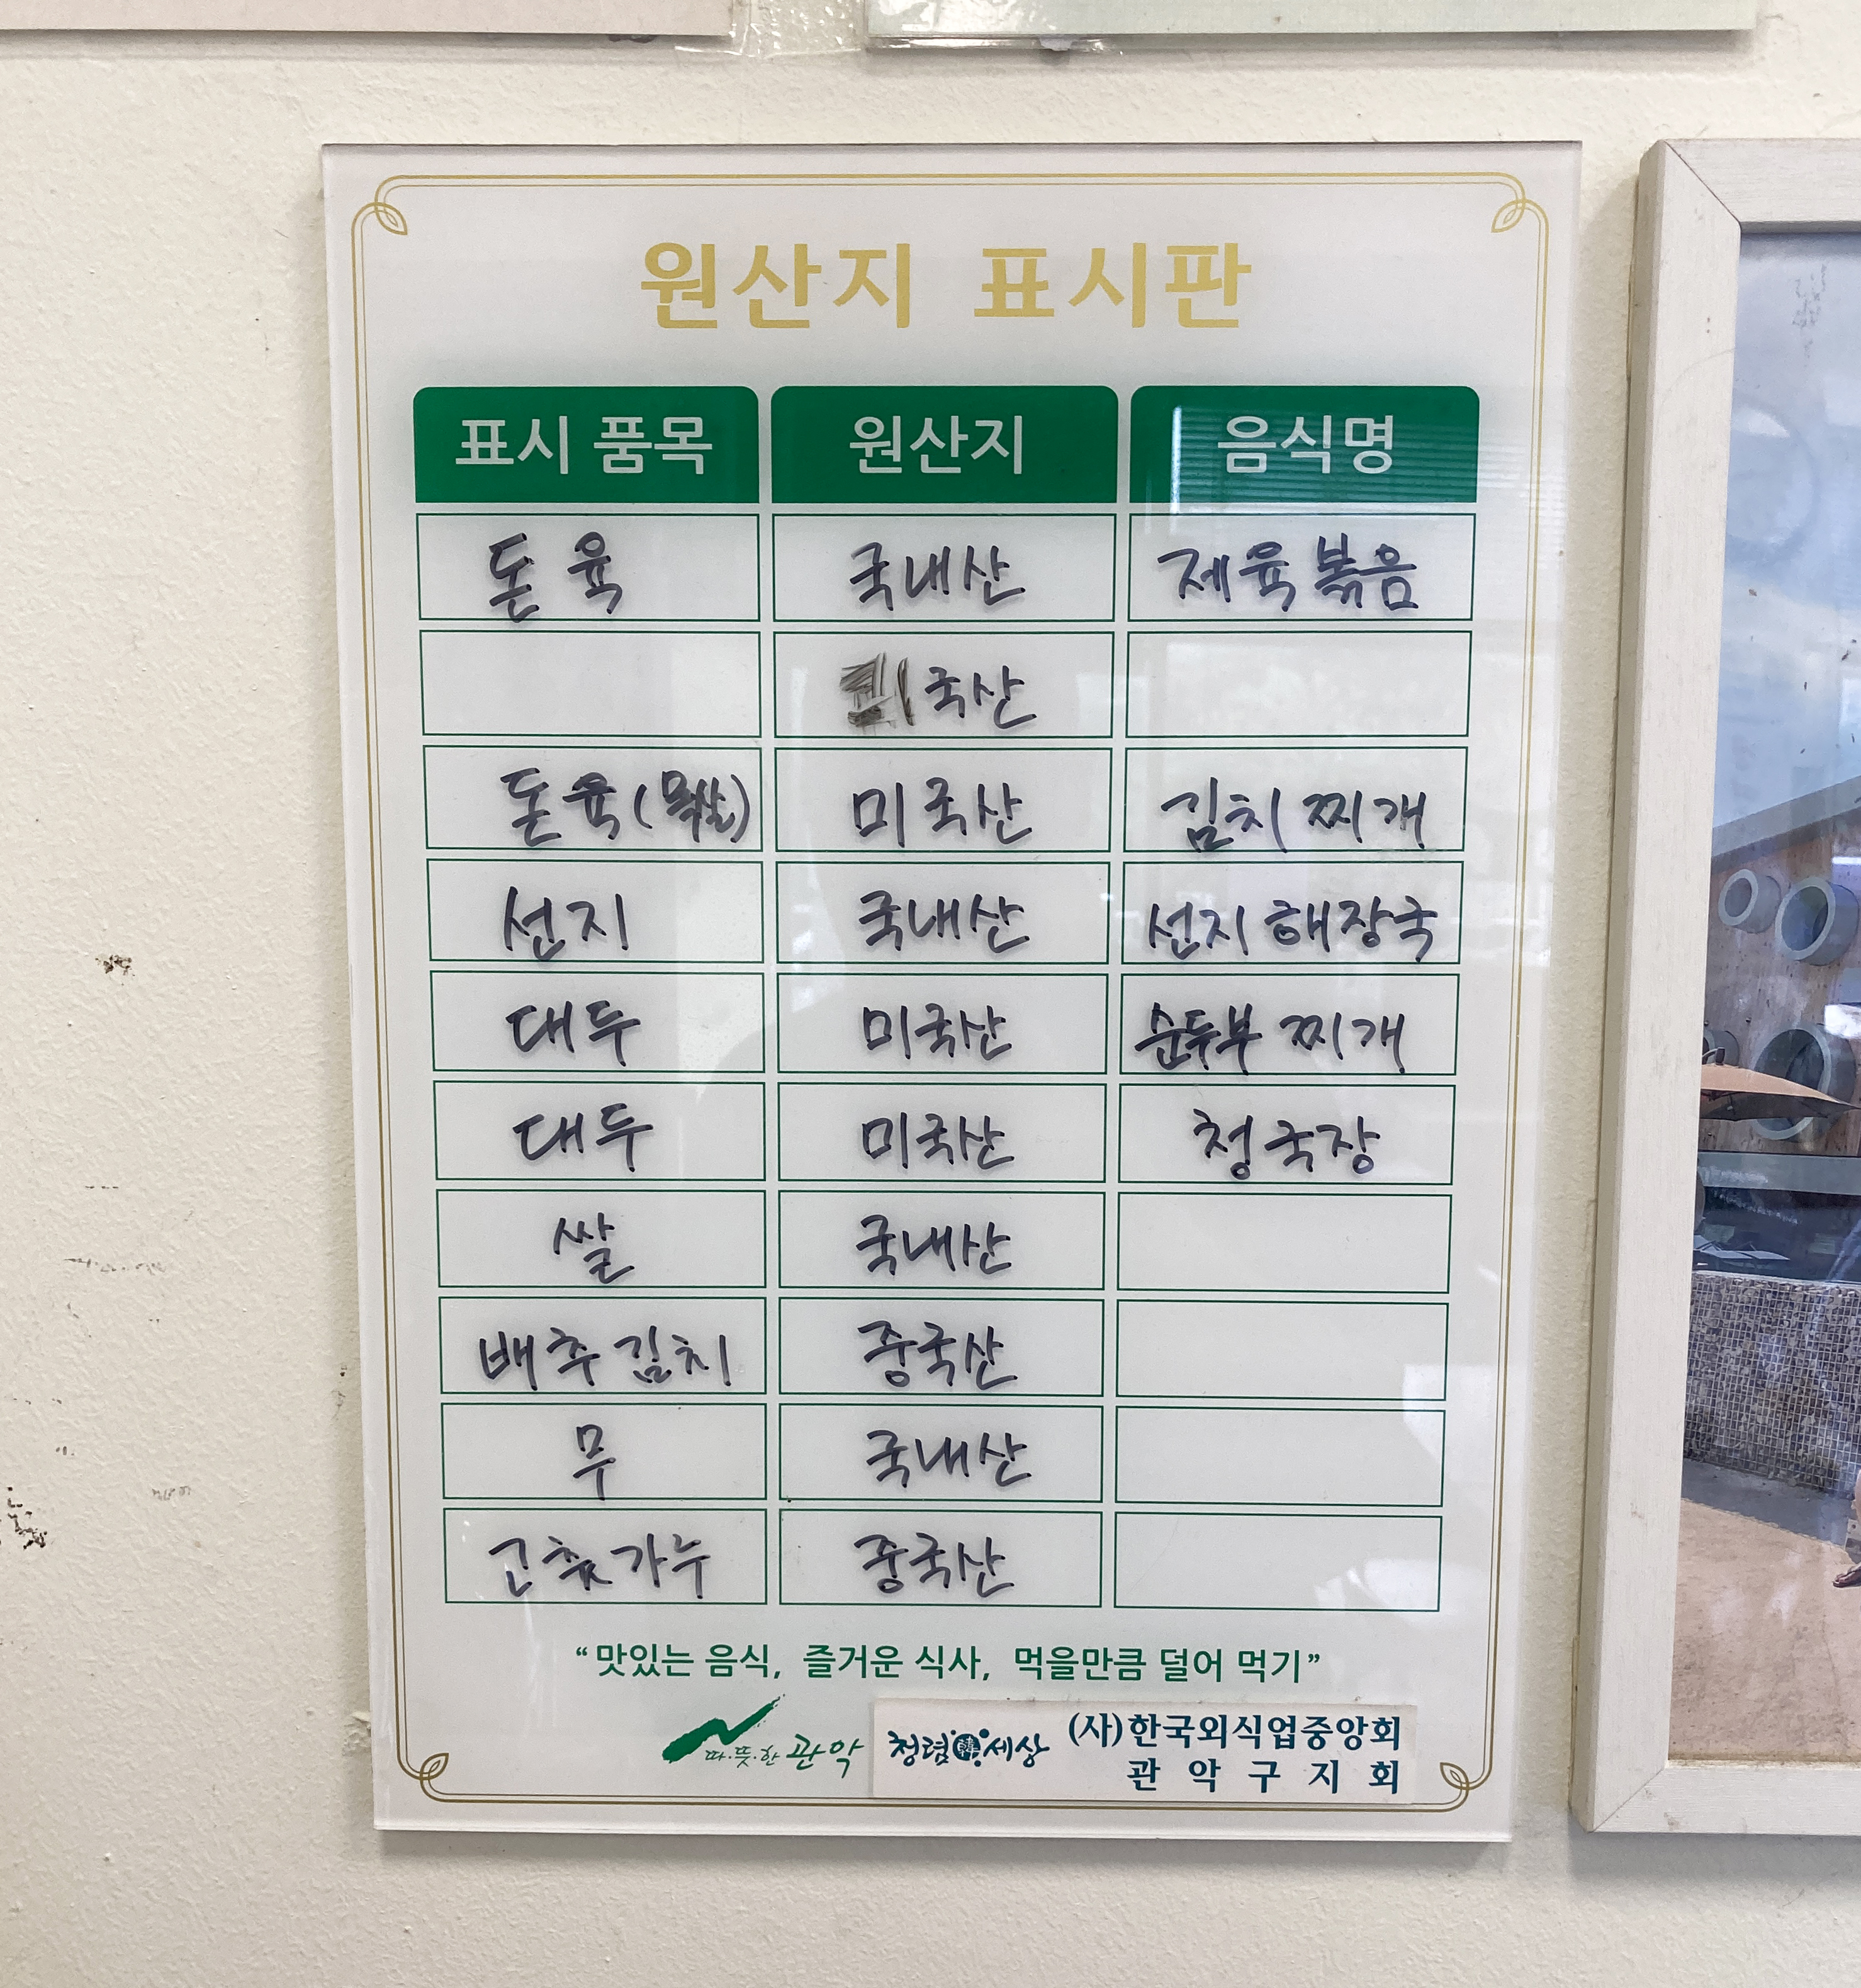 원산지 표시판
표시 품목 원산지 음식명
돈육 국내산 제육볶음
국산
돈육(목살) 미국산 김치찌개
선지 국내산 선지해장국
대두 미국산 순두부찌개
대두 미국산 청국장
쌀 국내산
배추김치 중국산
무 국내산
고춧가루 중국산
“맛있는 음식, 즐거운 식사, 먹을만큼 덜어 먹기”
따·뜻·한 관악 청렴韓세상 (사)한국외식업중앙회
관악구지회